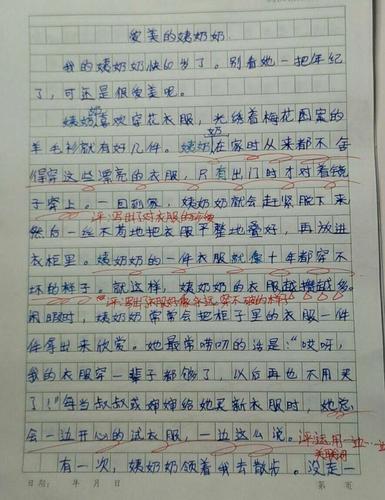 爱美的姨奶奶
我的姨奶奶快60岁了。别看她一把年纪
了,可还是很爱美呢。
姨奶奶喜欢穿花衣服,光绣着梅花图案的
羊毛衫就有好几件。姨奶奶在家时从来都不舍
得穿这些漂亮的衣服,只有出门时才对着镜
子穿上。一回到家,姨奶奶就会赶紧脱下来
评:写出了对衣服的珍爱
然后一丝不苟地把衣服平整地叠好,再放进
衣柜里。姨奶奶的一件衣服就像十年都穿不
坏的样子。就这样,姨奶奶的衣服越攒越多。
评:写出衣服好像永远穿不破的样子
闲暇时,姨奶奶常常会把柜子里的衣服一件
件拿出来欣赏。她最常唠叨的话是:“哎呀,
我的衣服穿一辈子都够了,以后再也不用买
了!”每当叔叔或婶婶给她买新衣服时,她总
会一边开心的试衣服,一边这么说。评:运用一边…一边
关联词
有一次,姨奶奶领着我去散步。没走一
日期: 年 月 日 第 页